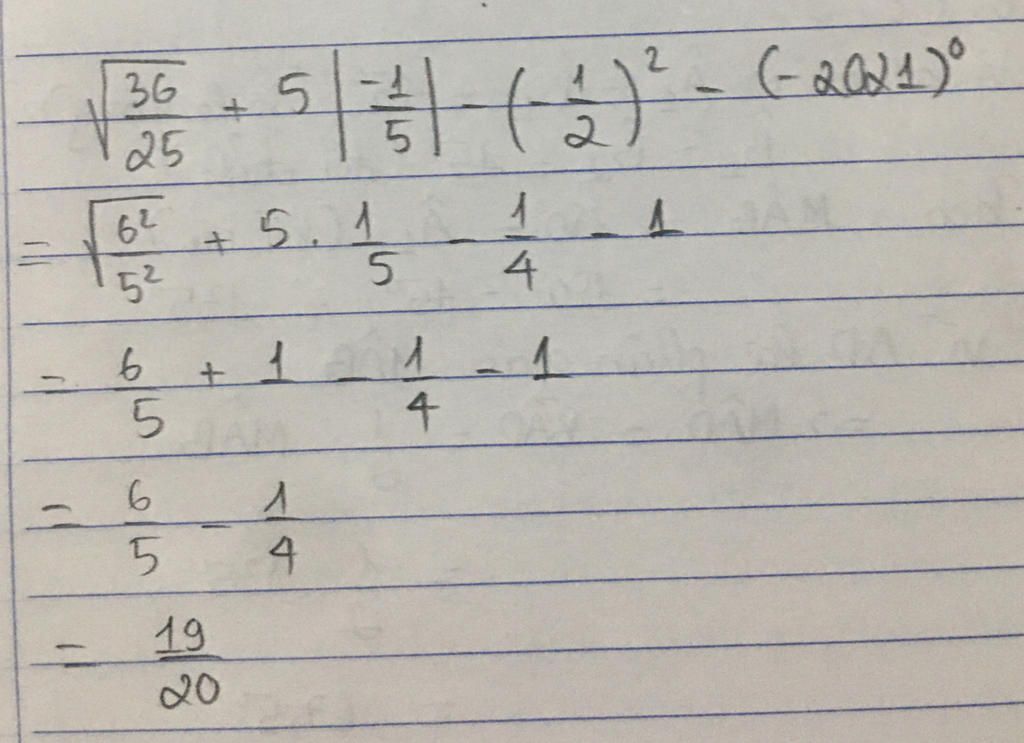 √(36/25) + 5 |-1/5| - (-1/2)² - (-2021)⁰
= √(6²/5²) + 5 . 1/5 - 1/4 - 1
= 6/5 + 1 - 1/4 - 1
= 6/5 - 1/4
= 19/20